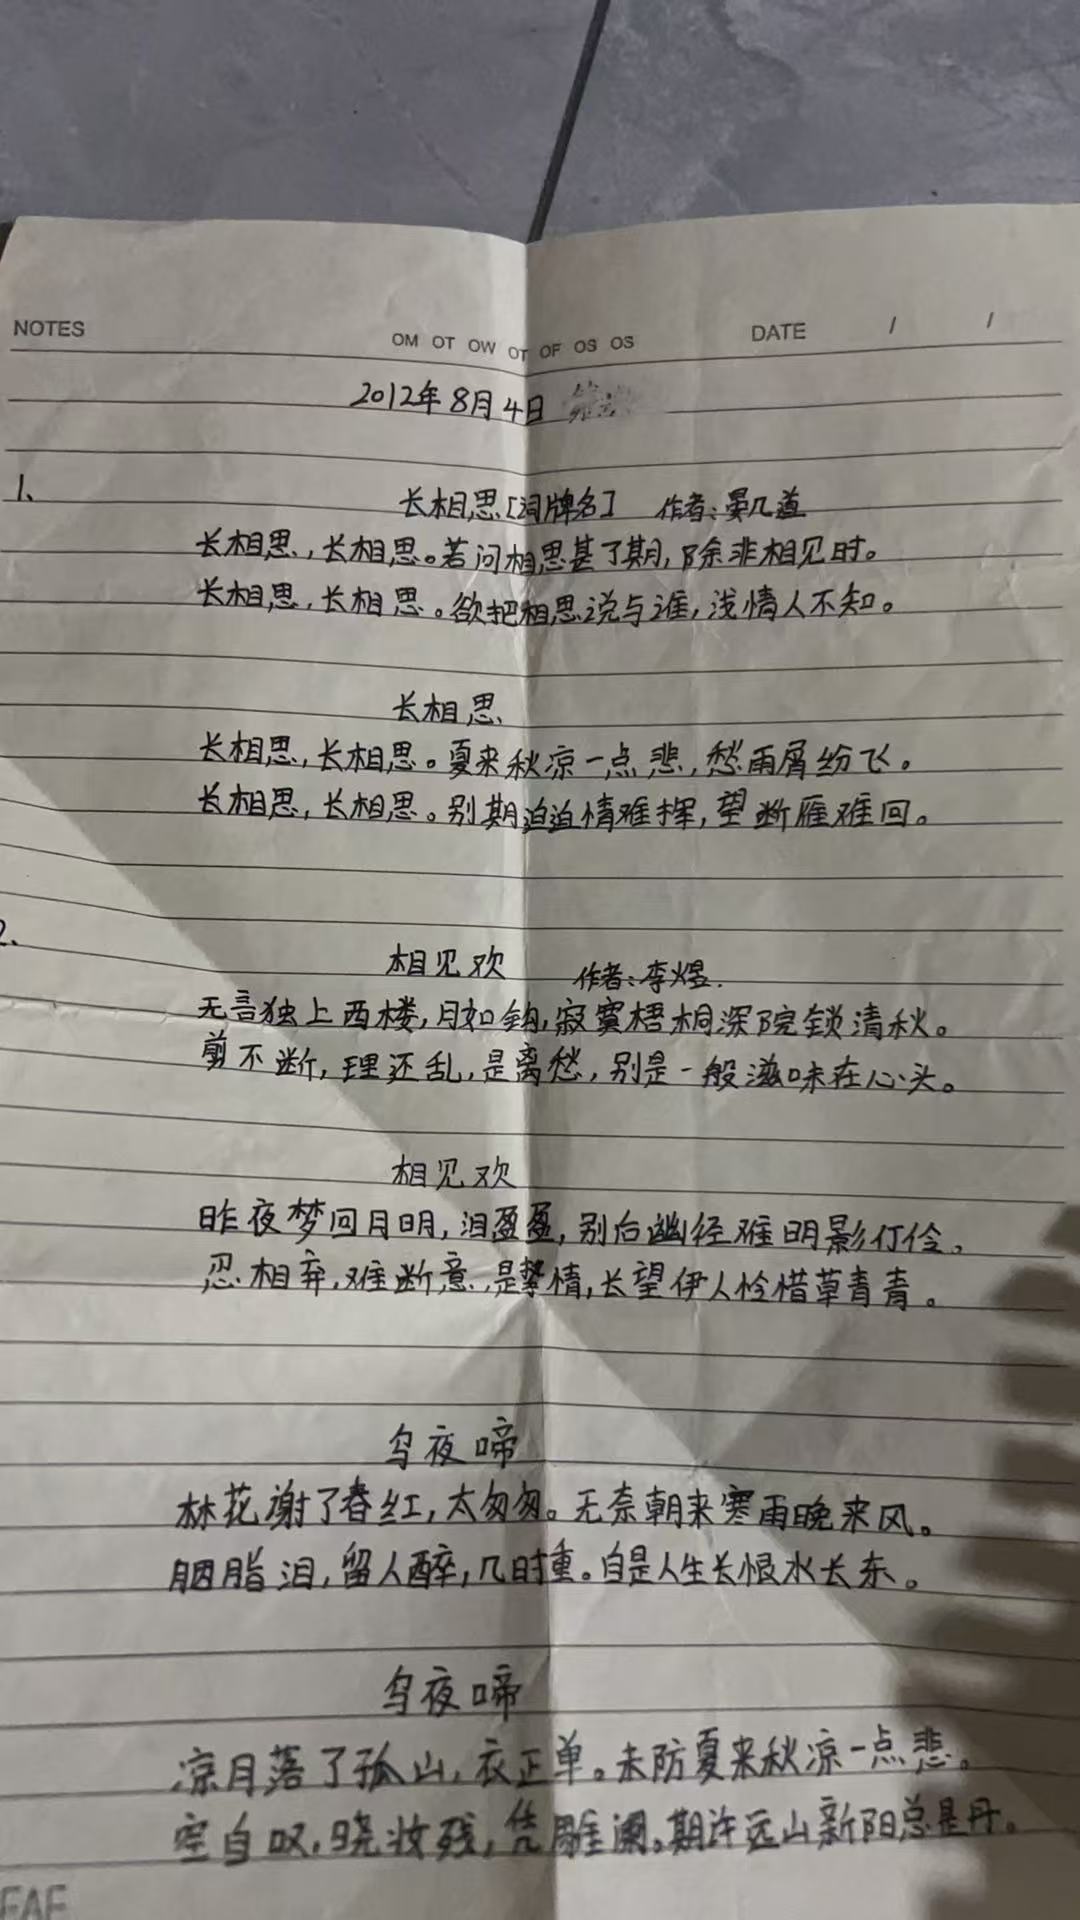 NOTES OM OT OW OT OF OS OS DATE / /
2012年8月4日
1、
长相思[词牌名] 作者：晏几道
长相思，长相思。若问相思甚了期，除非相见时。
长相思，长相思。欲把相思说与谁，浅情人不知。
长相思
长相思，长相思。夏来秋凉一点悲，愁雨屑纷飞。
长相思，长相思。别期迫迫情难挥，望断雁难回。
2、
相见欢 作者：李煜.
无言独上西楼，月如钩，寂寞梧桐深院锁清秋。
剪不断，理还乱，是离愁，别是一般滋味在心头。
相见欢
昨夜梦回月明，泪盈盈，别后幽径难明影伶伶。
忍相弃，难断意，是挚情，长望伊人怜惜草青青。
乌夜啼
林花谢了春红，太匆匆。无奈朝来寒雨晚来风。
胭脂泪，留人醉，几时重。自是人生长恨水长东。
乌夜啼
凉月落了孤山，衣正单。未防夏来秋凉一点悲。
空自叹，晓妆残，凭雕阑。期许远山新阳总是丹。